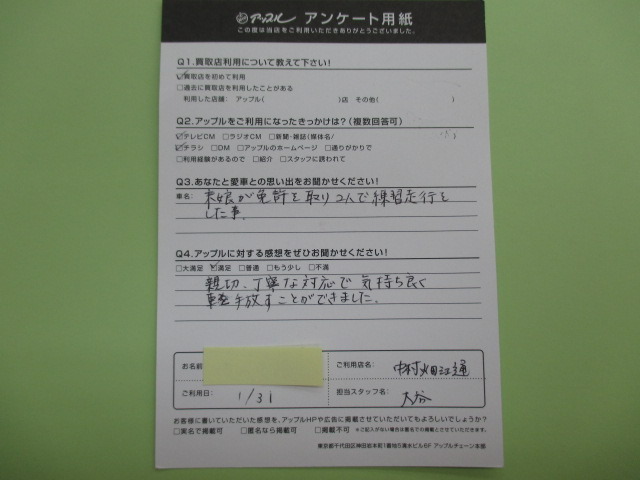 アップル アンケート用紙
この度は当店をご利用いただきありがとうございました。
Q1.買取店利用について教えて下さい!
☑買取店を初めて利用
□過去に買取店を利用したことがある
利用した店舗: アップル( )店 その他( )
Q2.アップルをご利用になったきっかけは?(複数回答可)
☑テレビCM □ラジオCM □新聞・雑誌(媒体名/ )
☑チラシ □DM □アップルのホームページ □通りがかりで
□利用経験があるので □紹介 □スタッフに誘われて
Q3.あなたと愛車との思い出をお聞かせください!
車名: 末娘が免許を取り2人で練習走行を
した事。
Q4.アップルに対する感想をぜひお聞かせください!
□大満足 ☑満足 □普通 □もう少し □不満
親切、丁寧な対応で気持ち良く
手放すことができました。
お名前
ご利用店名: 中村畑江通
ご利用日: 1/31
担当スタッフ名: 大谷
お客様に書いていただいた感想を、アップルHPや広告に掲載させていただいてもよろしいでしょうか?
□実名で掲載可 □匿名なら掲載可 □掲載不可 ※ご記入がない場合は匿名での掲載とさせていただきます。
東京都千代田区神田岩本町1番地5清水ビル6F アップルチェーン本部